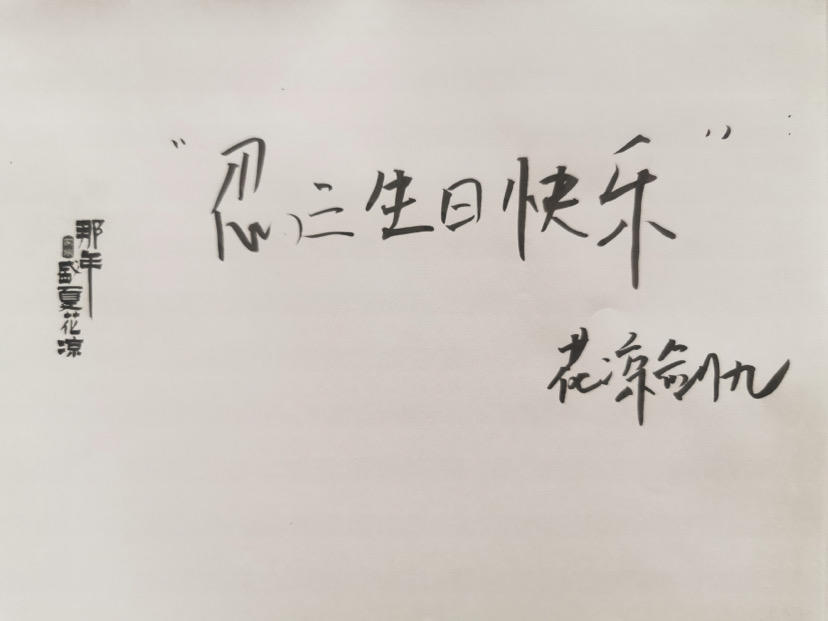 “忍三生日快乐”
花凉剑九
那年
盛夏花凉